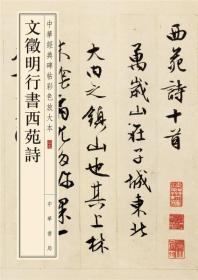 中華經典碑帖彩色放大本
文徵明行書西苑詩
中華書局
西苑詩十首
萬歲山在子城東北
大内之鎮山也其上林